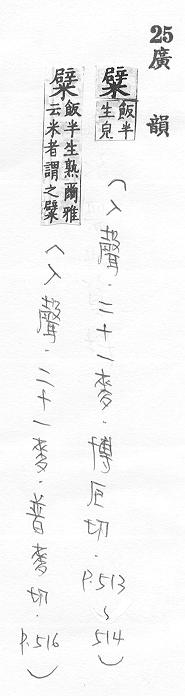 25廣韻
糪飯半生皃(入聲.二十一麥.博厄切.P.513~514)
糪飯半生熟爾雅云米者謂之糪(入聲.二十一麥.普麥切.P.516)